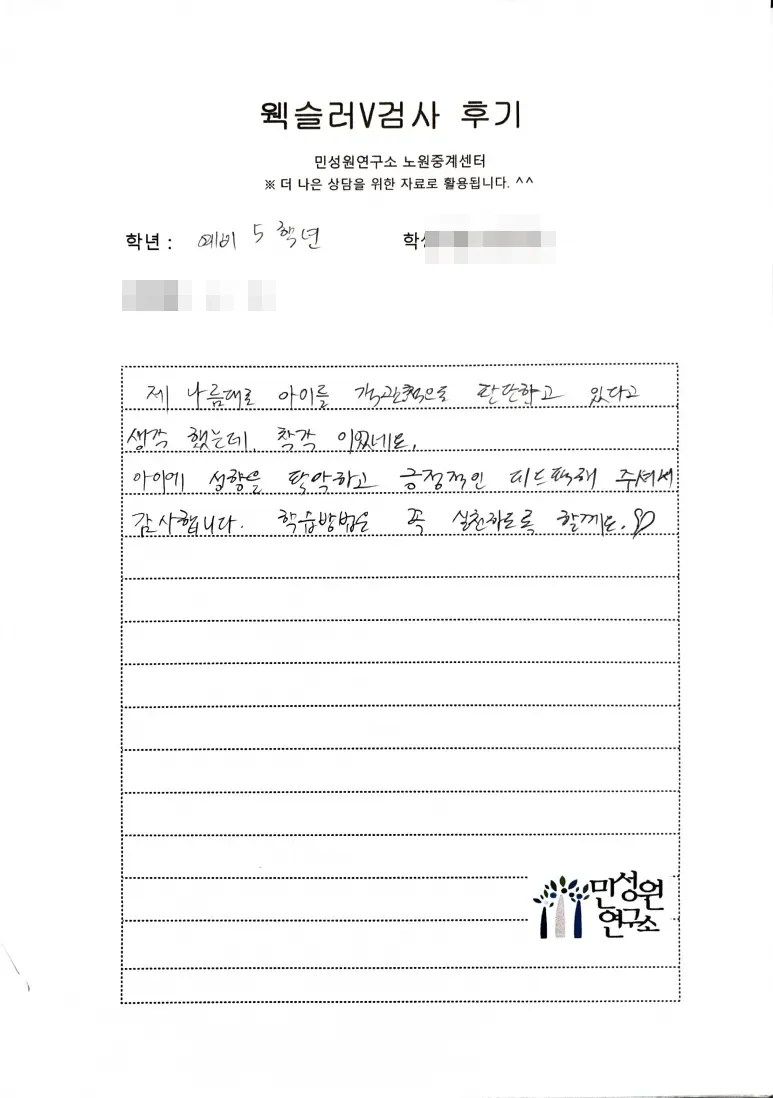 웩슬러V검사 후기
민성원연구소 노원중계센터
※ 더 나은 상담을 위한 자료로 활용됩니다. ^^
학년 : 예비 5학년
제 나름대로 아이를 객관적으로 판단하고 있다고
생각 했는데, 착각 이었네요.
아이에 성향을 파악하고 긍정적인 피드백해 주셔서
감사합니다. 학습방법은 꼭 실천하도록 할께요.♡
민성원
연구소